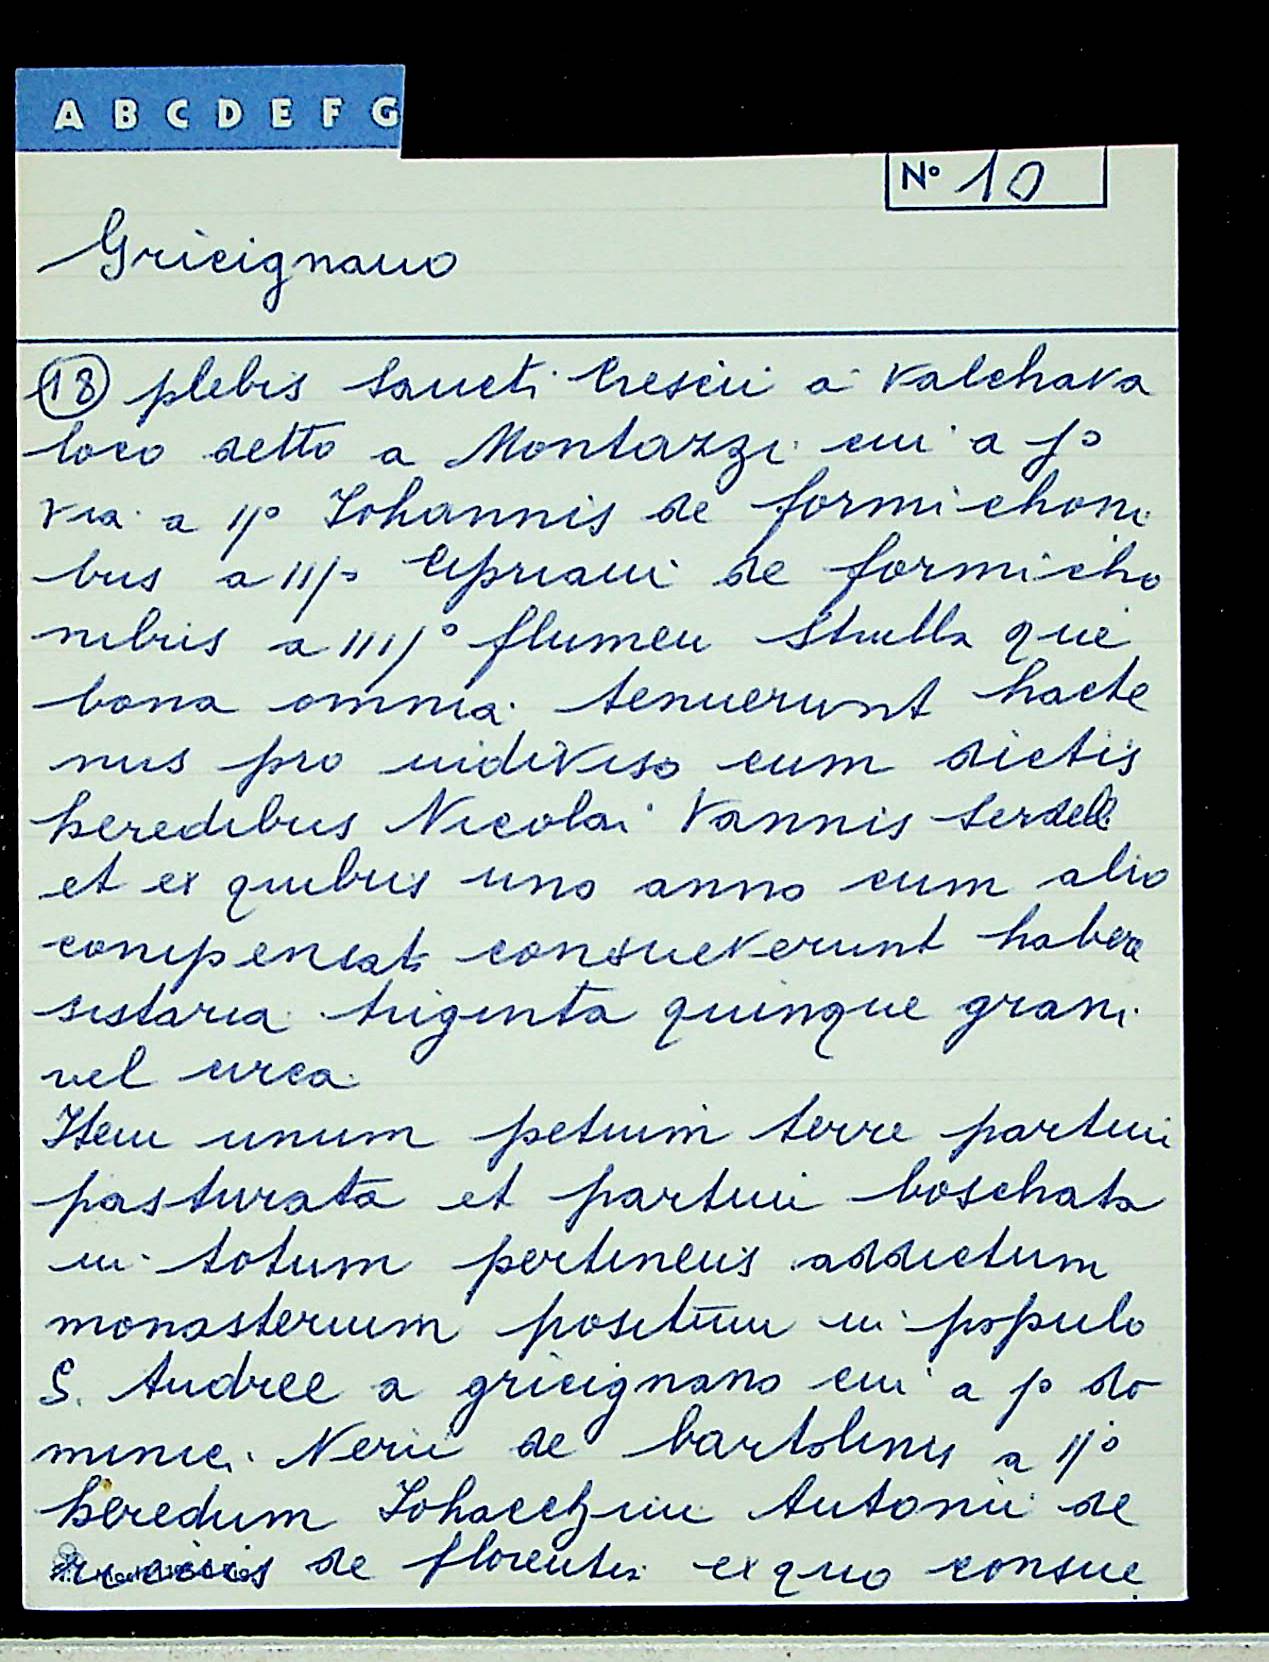 A B C D E F G
Nº 10
Gricignano
18 plebis Sancti Crescii a Valchava
loco detto a Montazzi cui a jº
via a ijº Johannis de formichoni
bus a iijº Cipriani de formicho
nibus a iiijº flumen Stulla que
bona omnia tenuerunt hacte
nus pro indiviso cum dictis
heredibus Nicolai Vannis Ser
et ex quibus uno anno cum alio
compensati consueverunt habere
sistaria triginta quinque grani
vel circa
Item unum petium terre partim
pasturata et partim boschata
in totum pertinens addictum
monasterium positum in populo
S. Andree a gricignano cui a pº do
minic. Nerii de bartolinis a ijº
heredum Johacchini Antonii de
de florentia ex quo consue